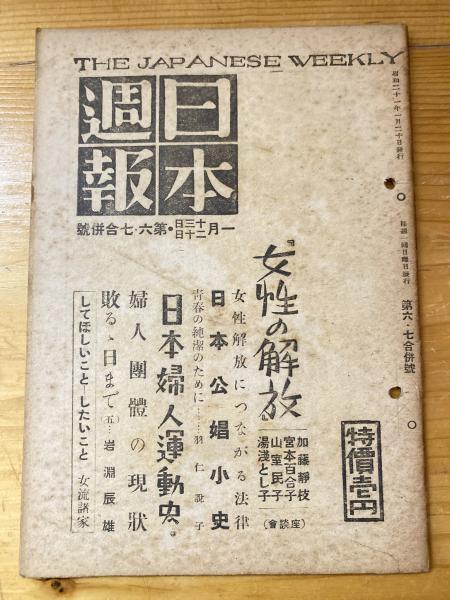 THE JAPANESE WEEKLY
日本
週報
一月十三日二十日・第六・七合併號
昭和二十一年一月二十日發行
第六・七合併號
特價壱円
『女性の解放』
加藤靜枝
宮本百合子
山室民子
湯淺とし子
(座談會)
女性解放につながる法律
日本公娼小史
青春の純潔のために……羽仁說子
日本婦人運動史・
婦人團體の現狀
敗るゝ日まで(五)…岩淵辰雄
してほしいこと―したいこと 女流諸家